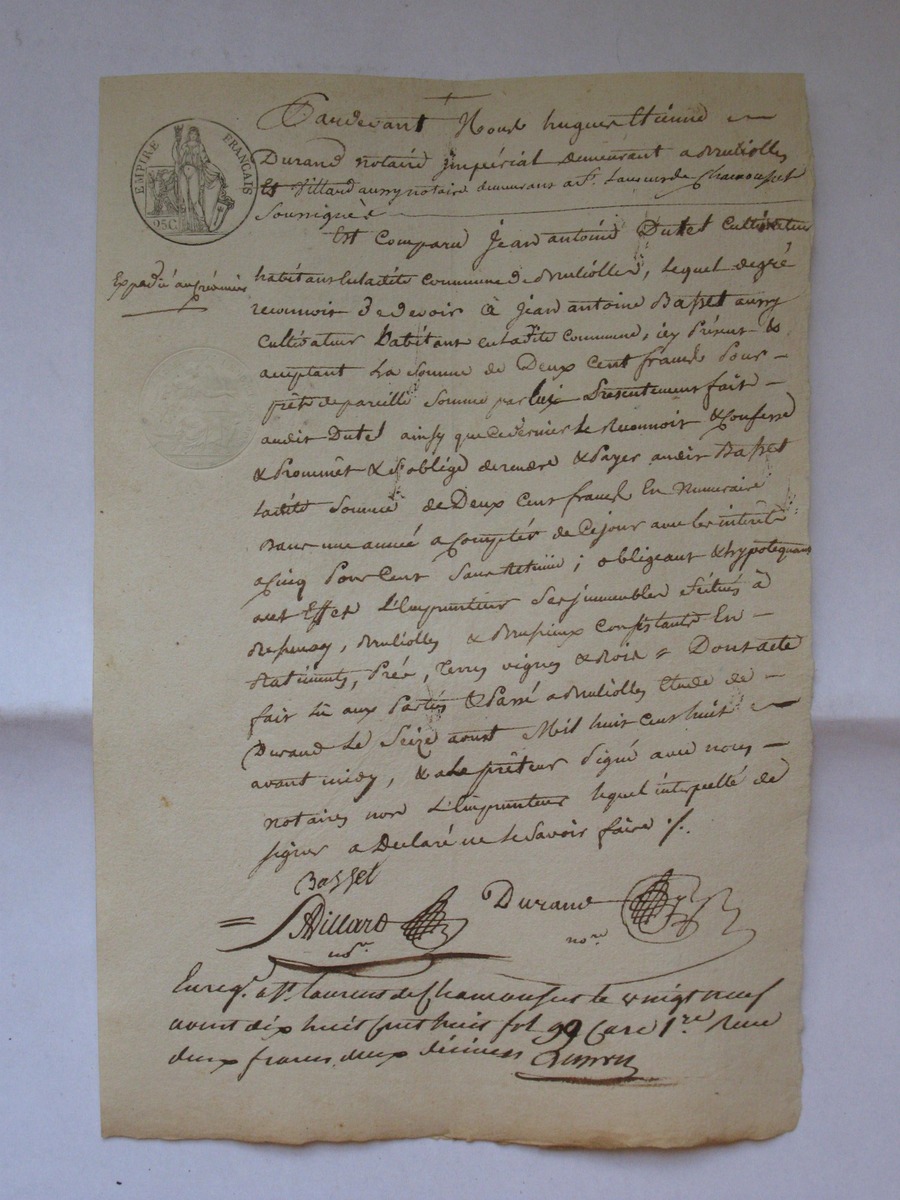 EMPIRE FRANÇAIS
25C
Pardevant Nous hugues Etienne
Durand notaire jmpérial demeurant a Brulioles
Et Villard aussy notaire demeurant a St. Laurent de Chamousset
Soussignés
Est comparu jean antoine Dutel Cultivateur
Expédié au créancier
habitant en ladite commune de Brullioles, lequel de gré
reconnoit devoir à jean antoine Basset aussy
cultivateur habitant en ladite commune, icy présent &
acceptant La somme de Deux cent francs pour
prêt de pareille somme par lui présentement fait
audit Dutel ainsy que ce dernier le reconnoit & confesse
& promêt & s'oblige de rendre & payer audit Basset
ladite somme de Deux cent francs En numeraire
Dans une année a compter de ce jour avec les intérêts
a cinq pour cent sans retenue ; obligeant & hypotequant
a cet Effet L'Emprunteur ses jmmeubles situés à
Brullioles & Brussieux consistants En
Batiments, prés, terres vignes & Bois = Dont acte
fait lu aux parties & passé a Brullioles Etude de
Durand Le Seize aoust Mil huit cent huit
avant midy, & a Le prêteur signé avec nous
notaires non L'Emprunteur lequel interpellé de
signer a Declaré ne le savoir faire ./.
Basset
Villard Durand
nore.
Enreg. a St. laurent de Chamousset le vingt neuf
aout dix huit cent huit fol 99 Case 1.re Reçu
deux francs deux décimes